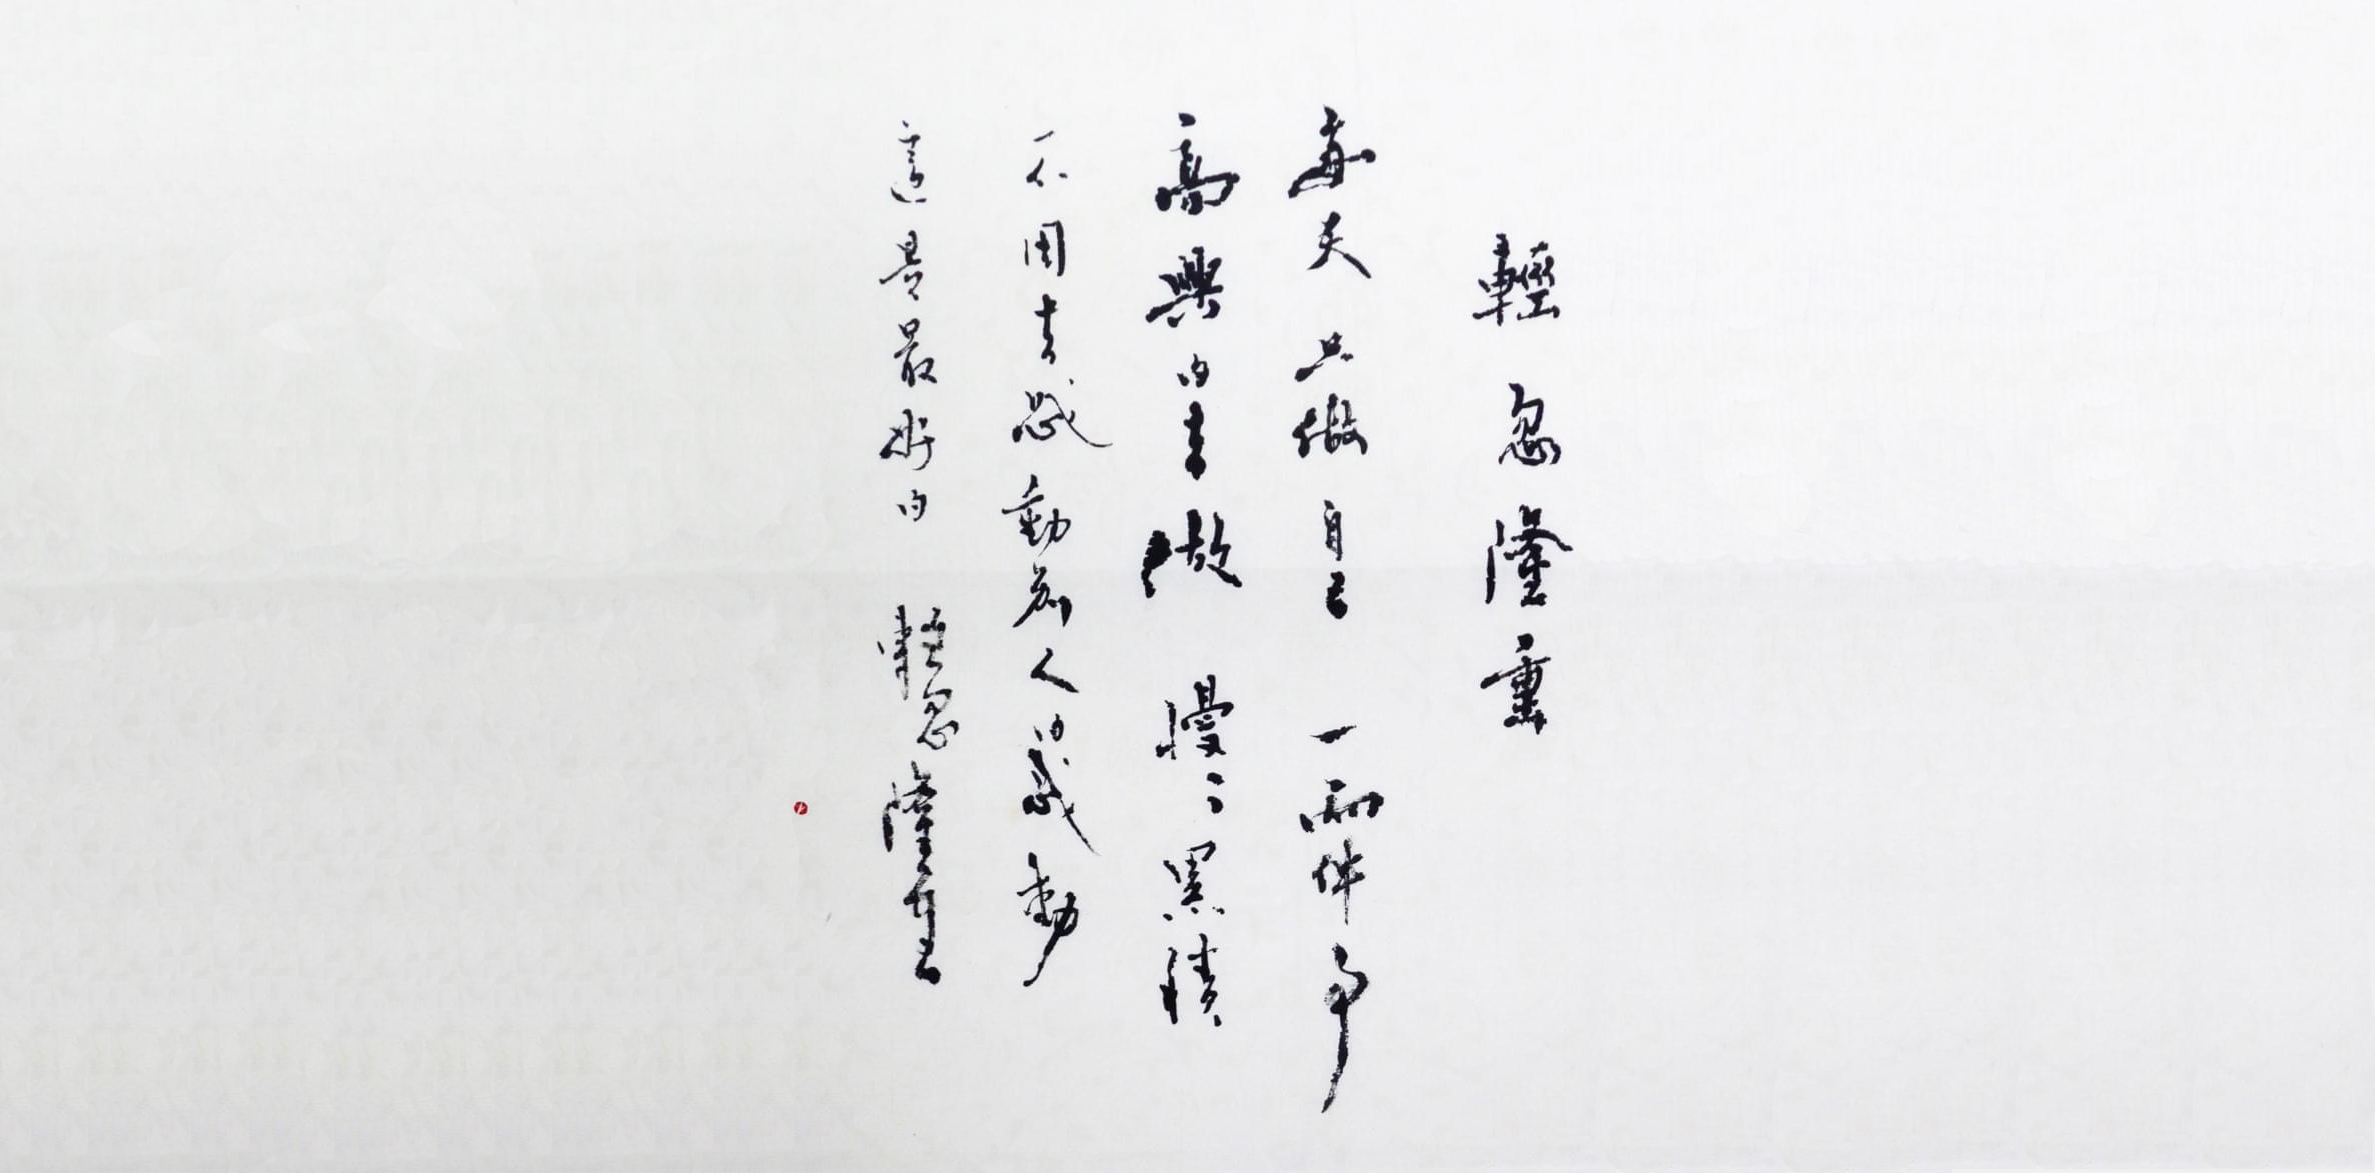 輕忽隆重
每天只做自己 一兩件事
高興的去做 慢〻累積
不用去感動別人的感動
這是最好的 輕忽隆重